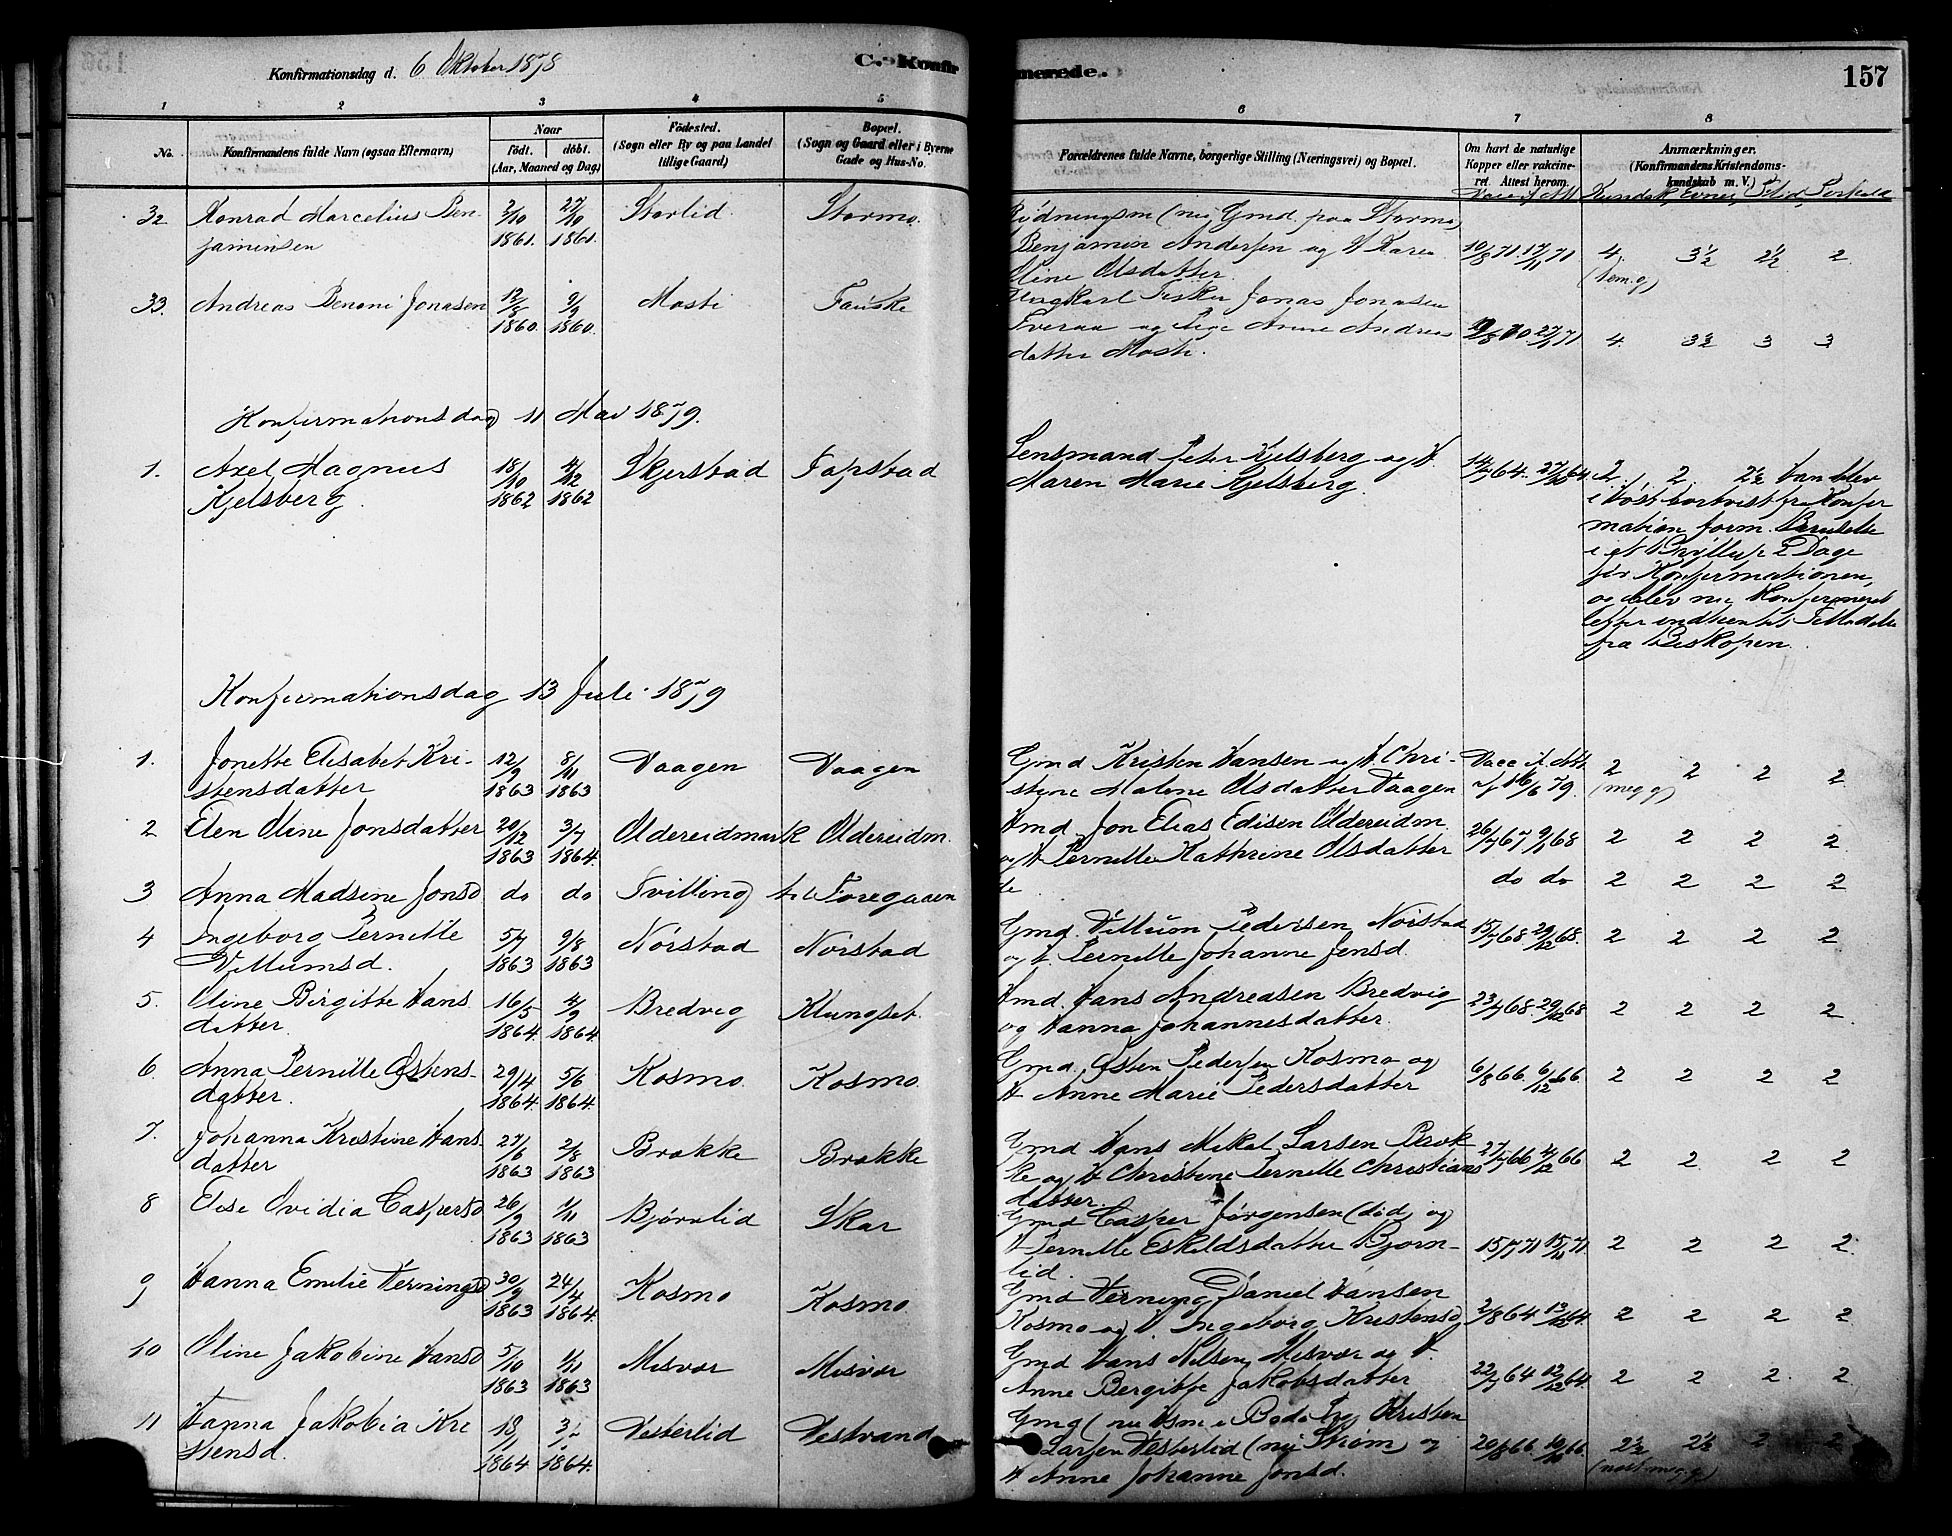 Konfirmationsdag d. 6 Oktober 1878
C. Konfir
merede.
157
1 2 3 4 5
6 7 8
No.
Konfirmandens fulde Navn (ogsaa Efternavn)
Naar
födt. döbt.
(Aar, Maaned og Dag)
Födested.
(Sogn eller By og paa Landet
tillige Gaard)
Bopæl.
(Sogn og Gaard eller i Byerne
Gade og Hus-No.
Forældrenes fulde Navne, borgerlige Stilling (Næringsvei) og Bopæl.
Om havt de naturlige
Kopper eller vakcine-
ret. Attest herom.
Anmærkninger.
(Konfirmandens Kristendoms-
kundskab m. V.)
Kundsk, Evner, Flid,
32. Konrad Marcelius Ben-
jaminsen
2/10 1861. 27/10 1861.
Storlid Stormo.
Rydningsm (nu Gmd. paa Stormo)
Benjamin Andersen og H Karen
Oline Olsdatter
10/8 71. 17/11 71
4 3½ 2½ 2
(tem. g)
33. Andreas Benoni Jonasen
12/8 1860. 9/9 1860.
Mosti Fauske
Ungkarl Fisker Jonas Jonasen
Tveraa og Pige Anne Andreas
datter Mosti.
4 3½ 3 3
Konfirmationsdag 11 Mai 1879.
1. Axel Magnus
Kjelsberg.
18/10 1862 4/12 1862
Skjerstad Fapstad
Lensmand Peter Kjelsberg og H.
Maren Marie Kjelsberg.
14/7 64. 27/10 64.
2 2 2½ Han blev
i Høst bortvist fra Konfir
mation form. Beruselse
i et Bryllup 2 Dage
før Konfirmationen,
og blev nu Konfirmeret
efter indhentet Tilladelse
fra Biskopen.
Konfirmationsdag 13 Juli 1879
1. Jonette Elisabet Kri-
stensdatter
12/9 1863 8/11 1863
Vaagen Vaagen
Gmd Kristen Hansen og H. Chri-
stine Malene Olsdatter Vaagen
Vacc A. dtt.
af 16/6 79.
2 2 2 2
(meg g)
2 Elen Oline Jonsdatter
20/12 1863 3/7 1864.
Oldereidmark Oldereidm.
Hmd Jon Elias Edisen Oldereidm.
og H Pernille Kathrine Olsdatter
26/7 67 9/1 68
2 2 2 2
3 Anna Madsine Jonsd do do Tvilling til Foregaaen
de do do 2 2 2 2
4 Ingeborg Pernille
Villumsd.
5/7 1863 9/8 1863
Nørstad Nørstad
Gmd. Villum Pedersen Nørstad
og H. Pernille Johanne Jensd.
15/7 68 29/12 68.
2 2 2 2
5. Oline Birgitte Hans
datter.
16/5 1864. 4/9 1864.
Bredvig Klungset.
Hmd. Hans Andreasen Bredvig
og Hanna Johannesdatter.
23/7 68 29/12 68
2 2 2 2
6. Anna Pernille Østens-
datter.
29/4 1864. 5/6 1864.
Kosmo. Kosmo.
Gmd. Østen Pedersen Kosmo og
H Anne Marie Pedersdatter
6/8 66. 6/12 66.
2 2 2 2
7. Johanna Kristine Hans-
datter
27/6 1863 2/8 1863
Brække Brække
Gmd Hans Mikal Larsen Bræk
ke og H Christine Pernille Christians
datter.
27/7 66 4/12 66
2 2 2 2
8 Else Ovidia Caspersd
26/9 1863 1/11 1863
Bjørnlid Skar
Gmd Casper Jørgensen (død) og
H Pernille Eskildsdatter Bjørn-
lid.
15/7 71 15/11 71.
2 2 2 2
9 Hanna Emilie Verningsd
30/9 1863 24/4 1864.
Kosmo Kosmo
Gmd Verning Daniel Hansen
Kosmo og H. Ingeborg Kristensd
2/8 64 13/12 64.
2 2 2 2
10 Oline Jakobine Hansd
5/10 1863 1/11 1863
Misvær Misvær
Gmd Hans Nilsen Misvær og H.
Anne Bergitte Jakobsdatter
22/7 64 12/12 64.
2 2 2 2
11 Hanna Jakobia Kri
stensd.
18/1 1864 1864.
Vesterlid Vestvand
Gmd (nu Hsm i Bodø Lg) Kristen
Larsen Vesterlid (nu Strøm) og
H Anne Johanne Jonsd.
20/8 66. 10/10 66.
2½ 2½ 2 2
(næst. meg. g.)